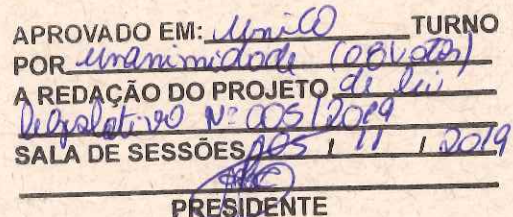 APROVADO EM: Unico TURNO
POR unanimidade (08 votos)
A REDAÇÃO DO PROJETO de lei
legislativo Nº 005/2019
SALA DE SESSÕES 05 / 11 / 2019
PRESIDENTE